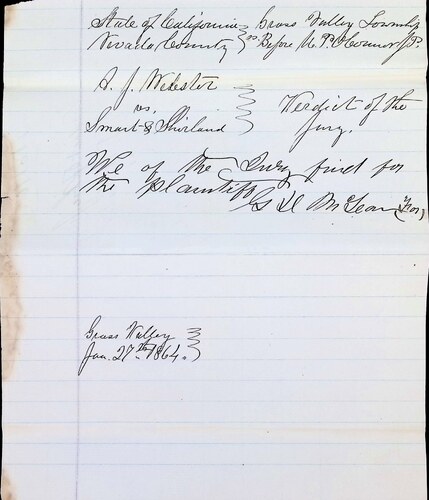 State of California } ss Grass Valley Township
Nevada County } Before M. P. O'Connor J.P.
A. J. Webster
vs.
Smart & Shirland
Verdict of the
Jury.
We of the Jury find for
the plaintiff
G McLean (For)
Grass Valley
Jan. 27th 1864.